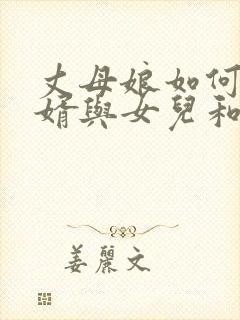 丈母娘如何
婿與女兒和
姜麗文